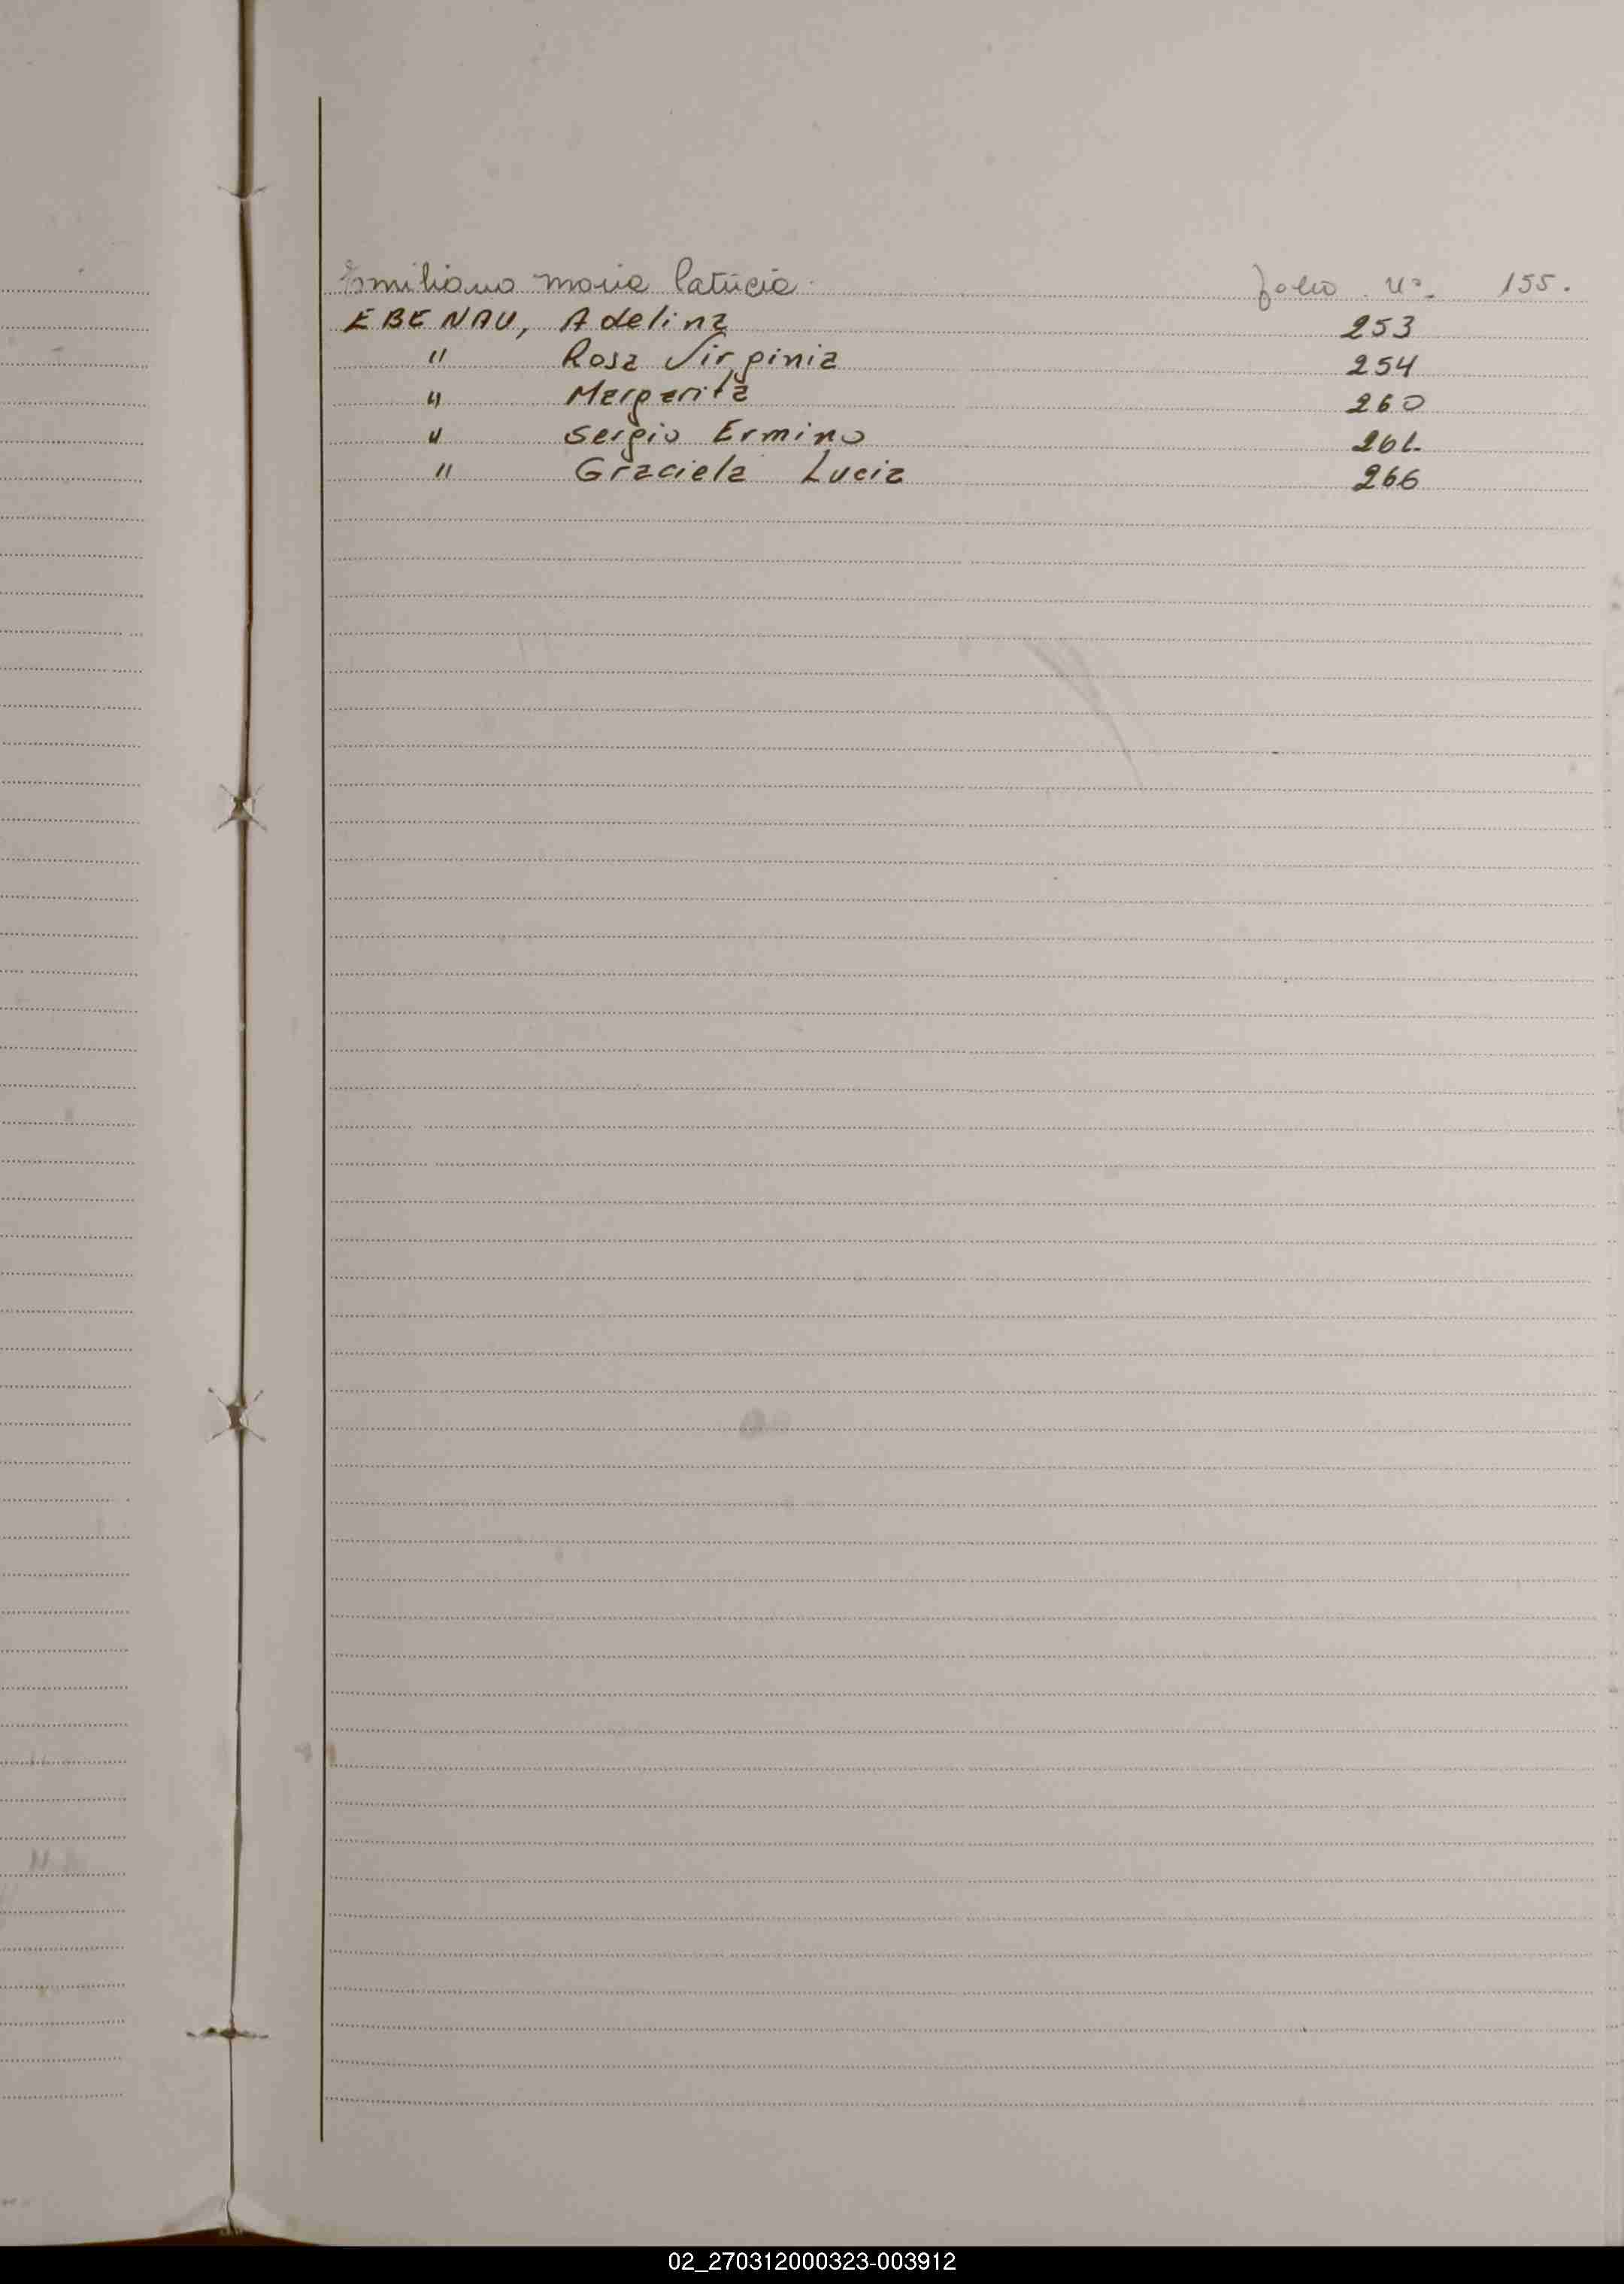 Emiliano Maria Patricia folio nº 155.
EBENAU, Adelina 253
" Rosa Virginia 254
" Margarita 260
" Sergio Ermino
" Graciela Lucia 266
02_270312000323-003912